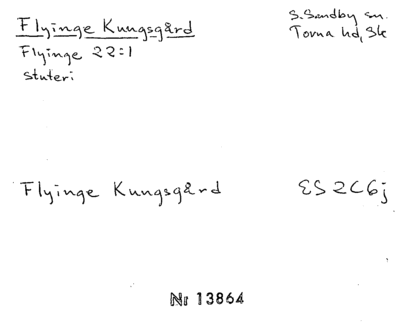 Flyinge Kungsgård
S. Sandby sn.
Flyinge 22:1
Torna hd, Sk
Stuteri
Flyinge Kungsgård
ES 2C6j
Nr 13864